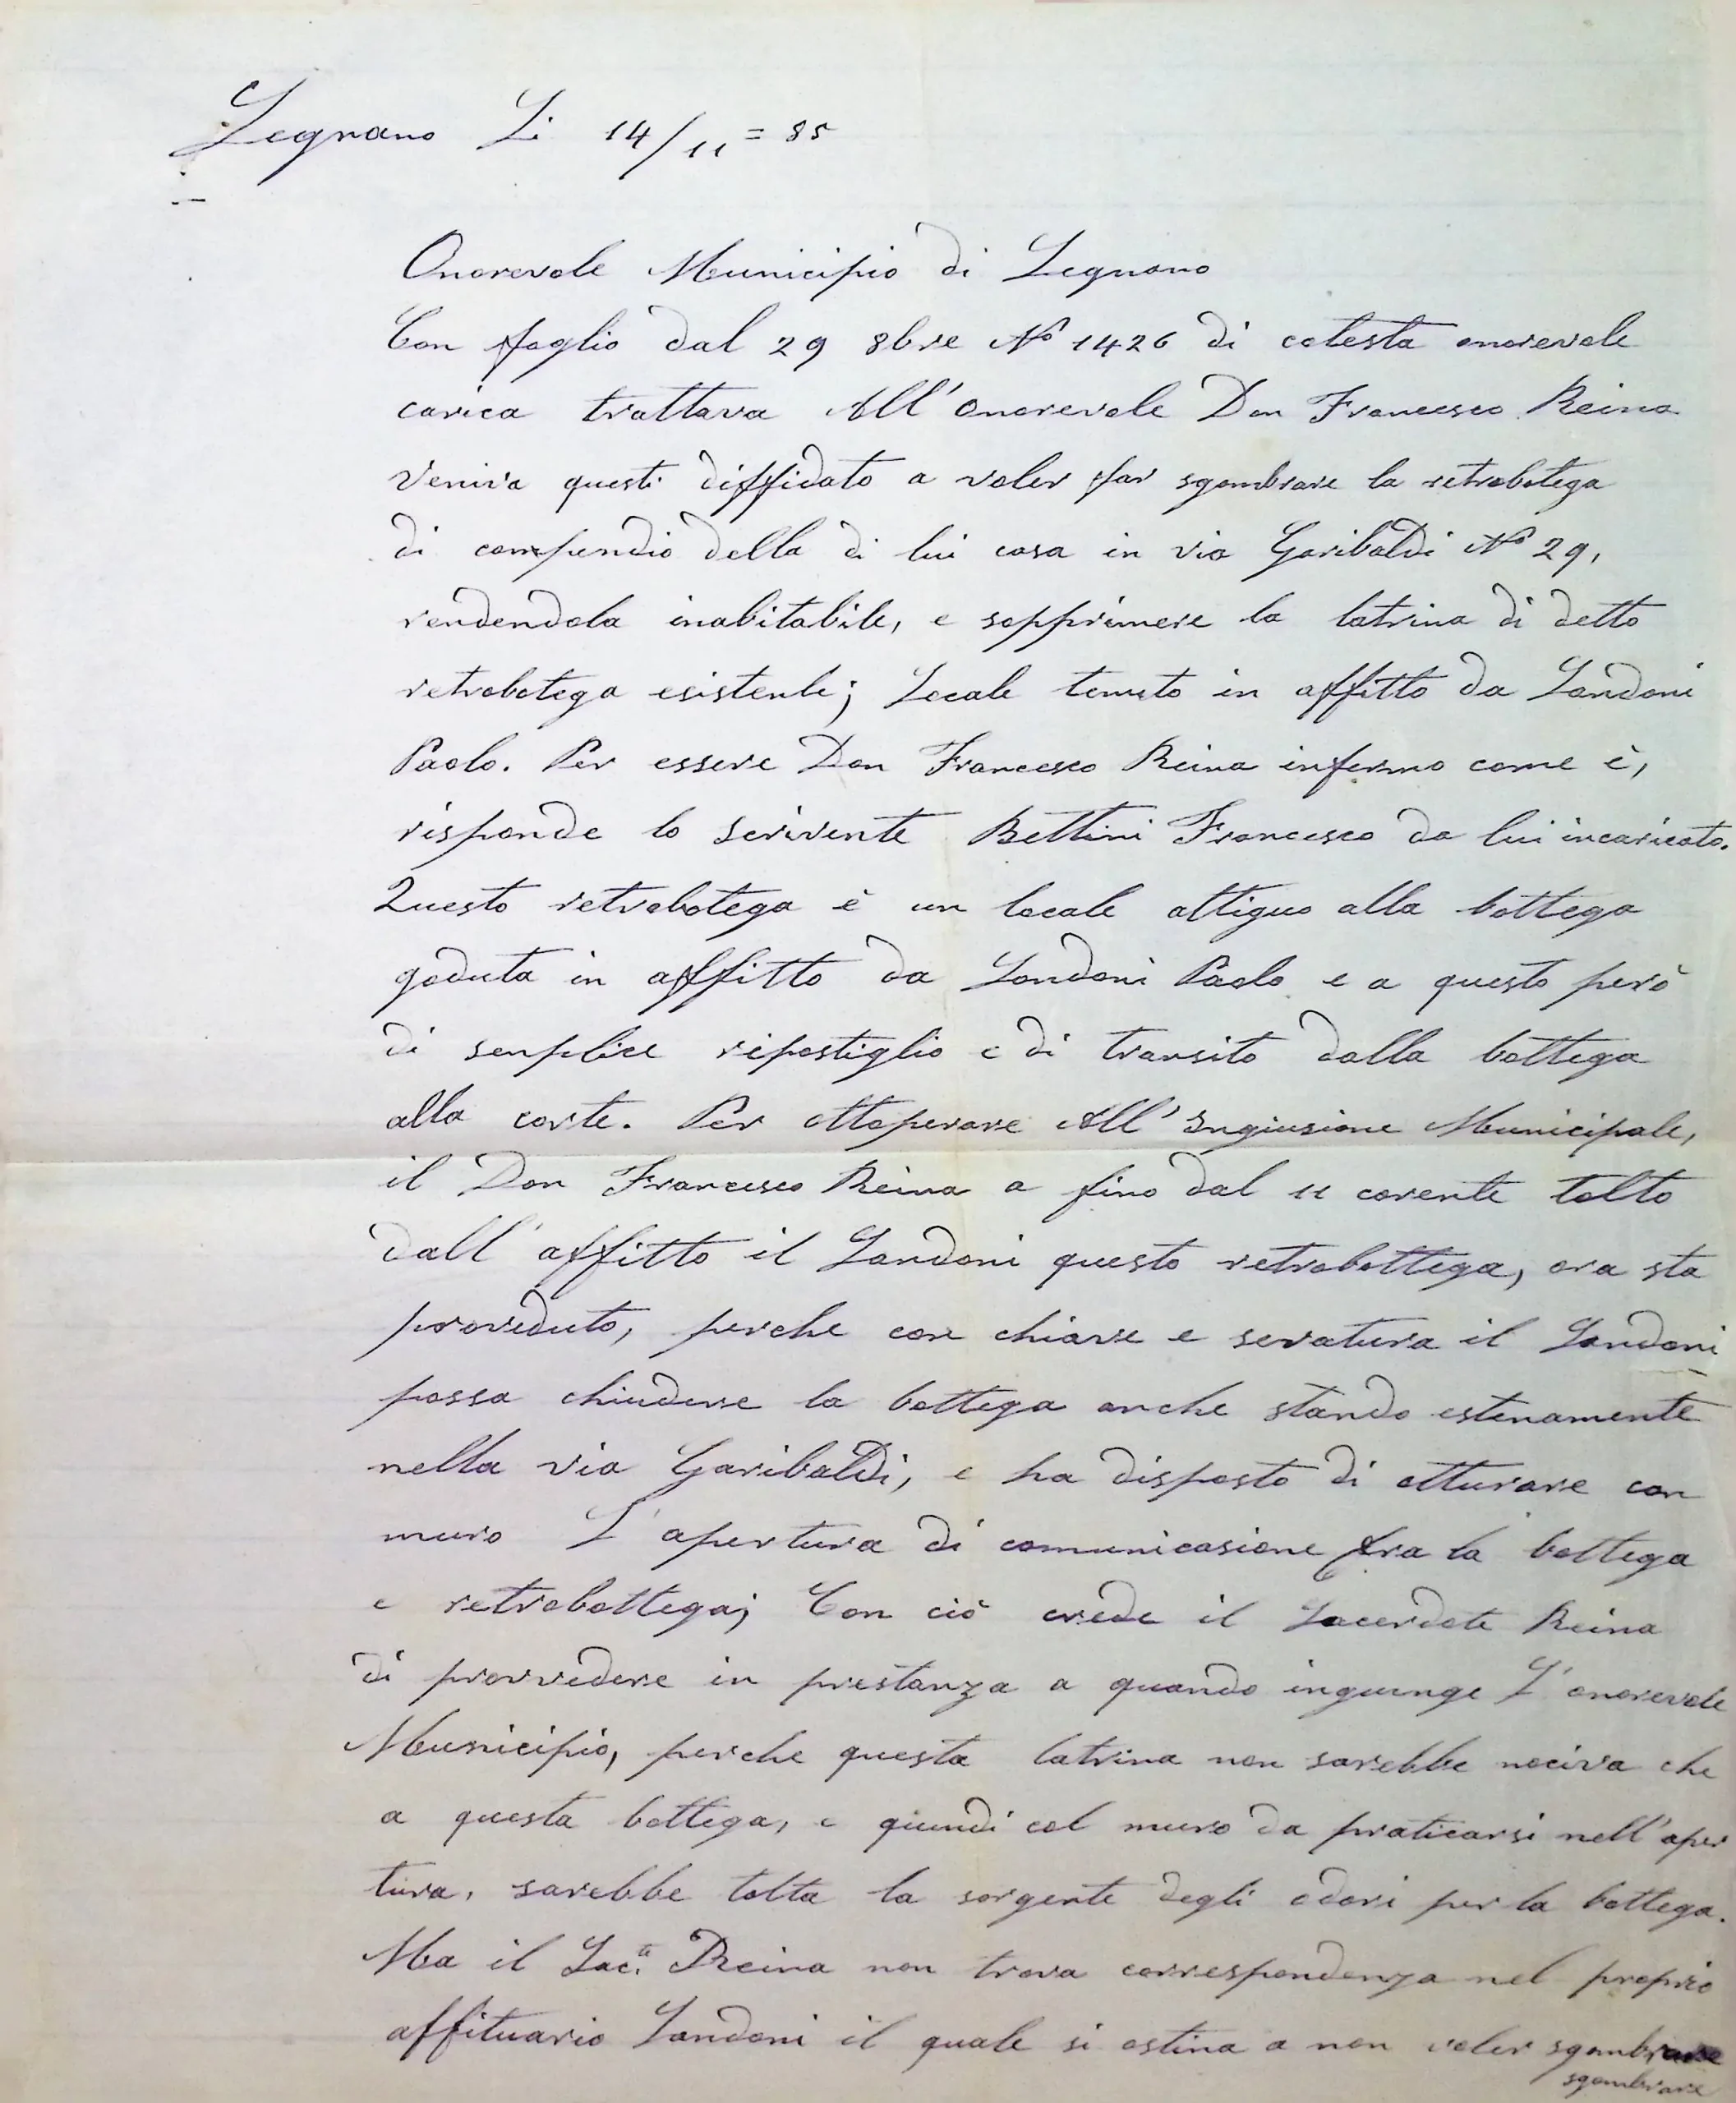 Legnano Li 14/11 = 85
Onorevole Municipio di Legnano
Con foglio dal 29 8bre No 1426 di cotesta onorevole
carica trattava All' Onorevole Don Francesco Reina
veniva questi diffidato a voler far sgombrare la retrobotega
di compendio della di lui casa in via Garibaldi No 29,
rendendola inabitabile, e sopprimere la latrina di detto
retrobotega esistente; Locale tenuto in affitto da Landoni
Paolo. Per essere Don Francesco Reina infermo come è,
risponde lo scrivente Bettini Francesco da lui incaricato.
Questo retrobotega è un locale attiguo alla bottega
goduta in affitto da Landoni Paolo e a questo però
di senplice ripostiglio e di transito dalla bottega
alla corte. Per ottoperare All' Ingiusione Municipale,
il Don Francesco Reina a fino dal 11 corente tolto
dall' affitto il Landoni questo retrobottega, ora sta
proveduto, perche con chiave e seratura il Landoni
possa chiudere la bottega anche stando estenamente
nella via Garibaldi, e ha disposto di otturare con
muro L' apertura di comunicasione fra la bottega
e retrobottega; Con ciò crede il Sacerdote Reina
di provvedere in prestanza a quando inguunge L' onorevole
Municipio, perche questa latrina non sarebbe nociva che
a questa bottega, e quindi col muro da praticarsi nell' aper
tura, sarebbe tolta la sorgente degli odori per la bottega.
Ma il Sac.te Reina non trova correspondenza nel proprio
affituario Landoni il quale si ostina a non voler sgombrare
sgombrare